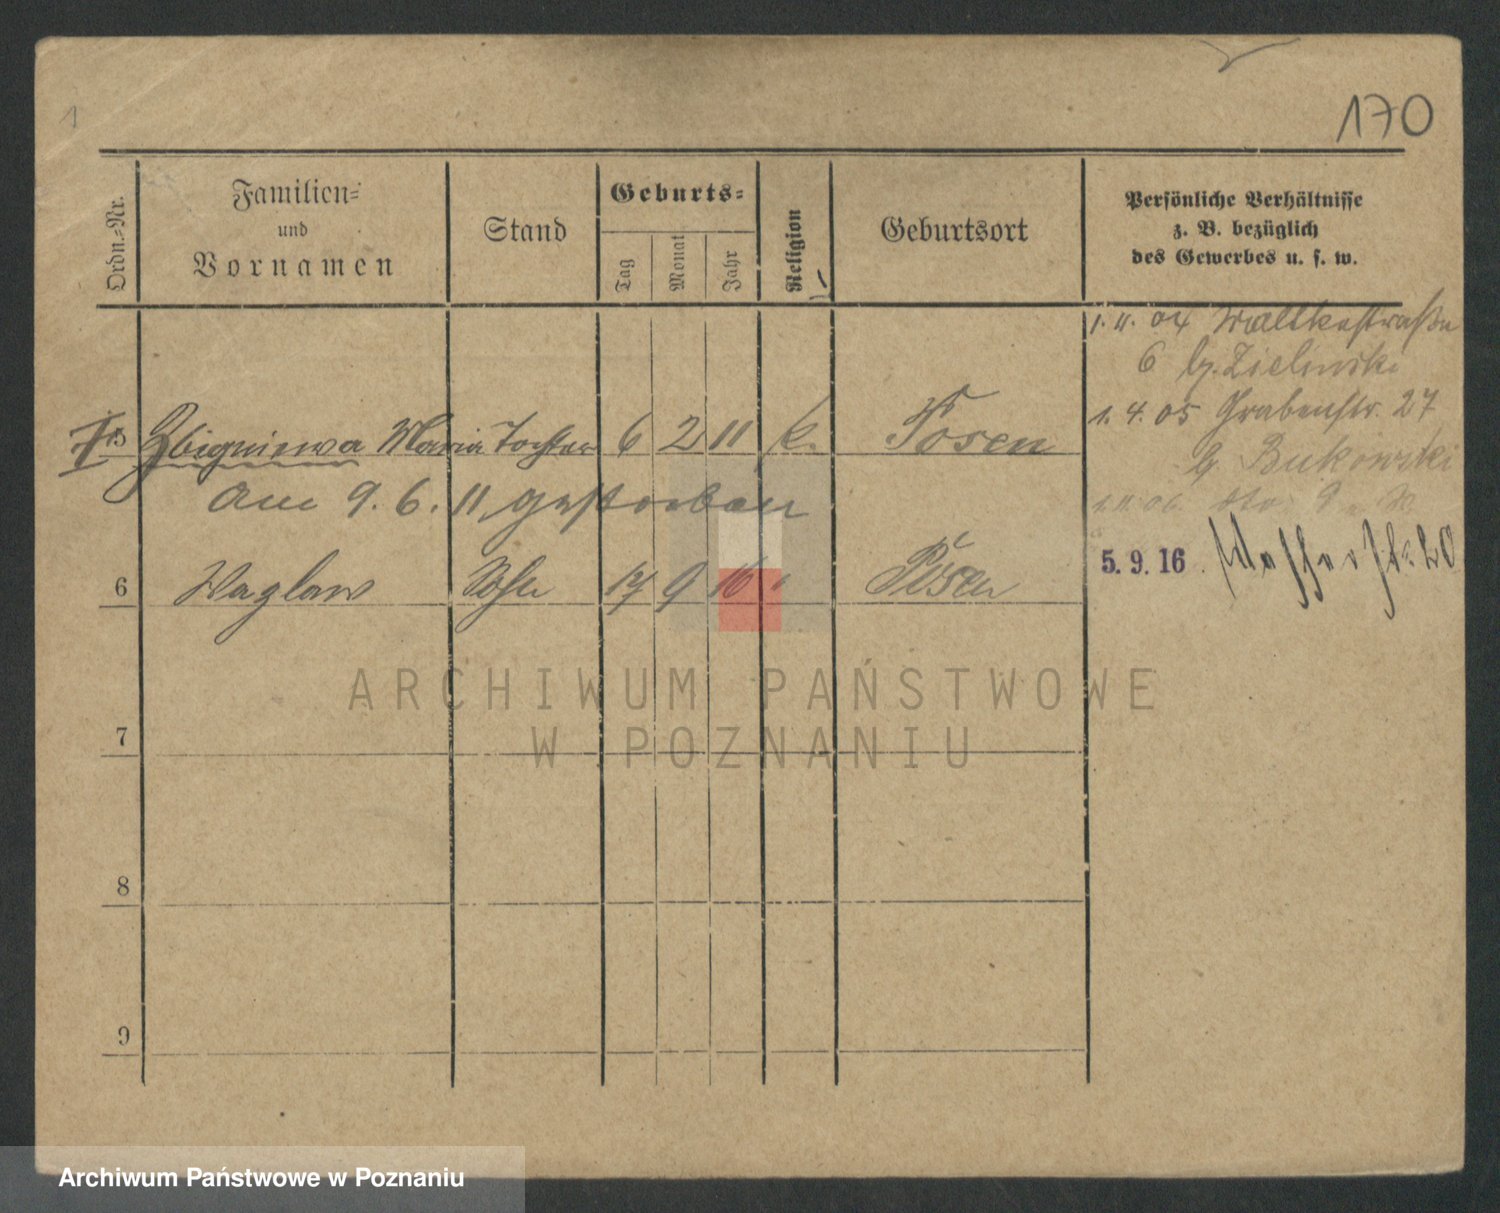 1
170
Ordn.-Nr.
Familien-
und
Vornamen
Stand
Geburts-
Tag
Monat
Jahr
Religion
Geburtsort
Persönliche Verhältnisse
z. B. bezüglich
des Gewerbes u. s. w.
1. 11. 04
6 b. Zielinski
1. 4. 05 Grabenstr. 27
b. Bukowski
5. 9. 16 Wasserstr. 20
5 Zbigniewa Maria Tochter 6 2 11 k. Posen
Am 9. 6. 11 gestorben
6 Wazlaw Sohn 17 9 16 " Posen
7
8
9
ARCHIWUM PAŃSTWOWE
W POZNANIU
Archiwum Państwowe w Poznaniu